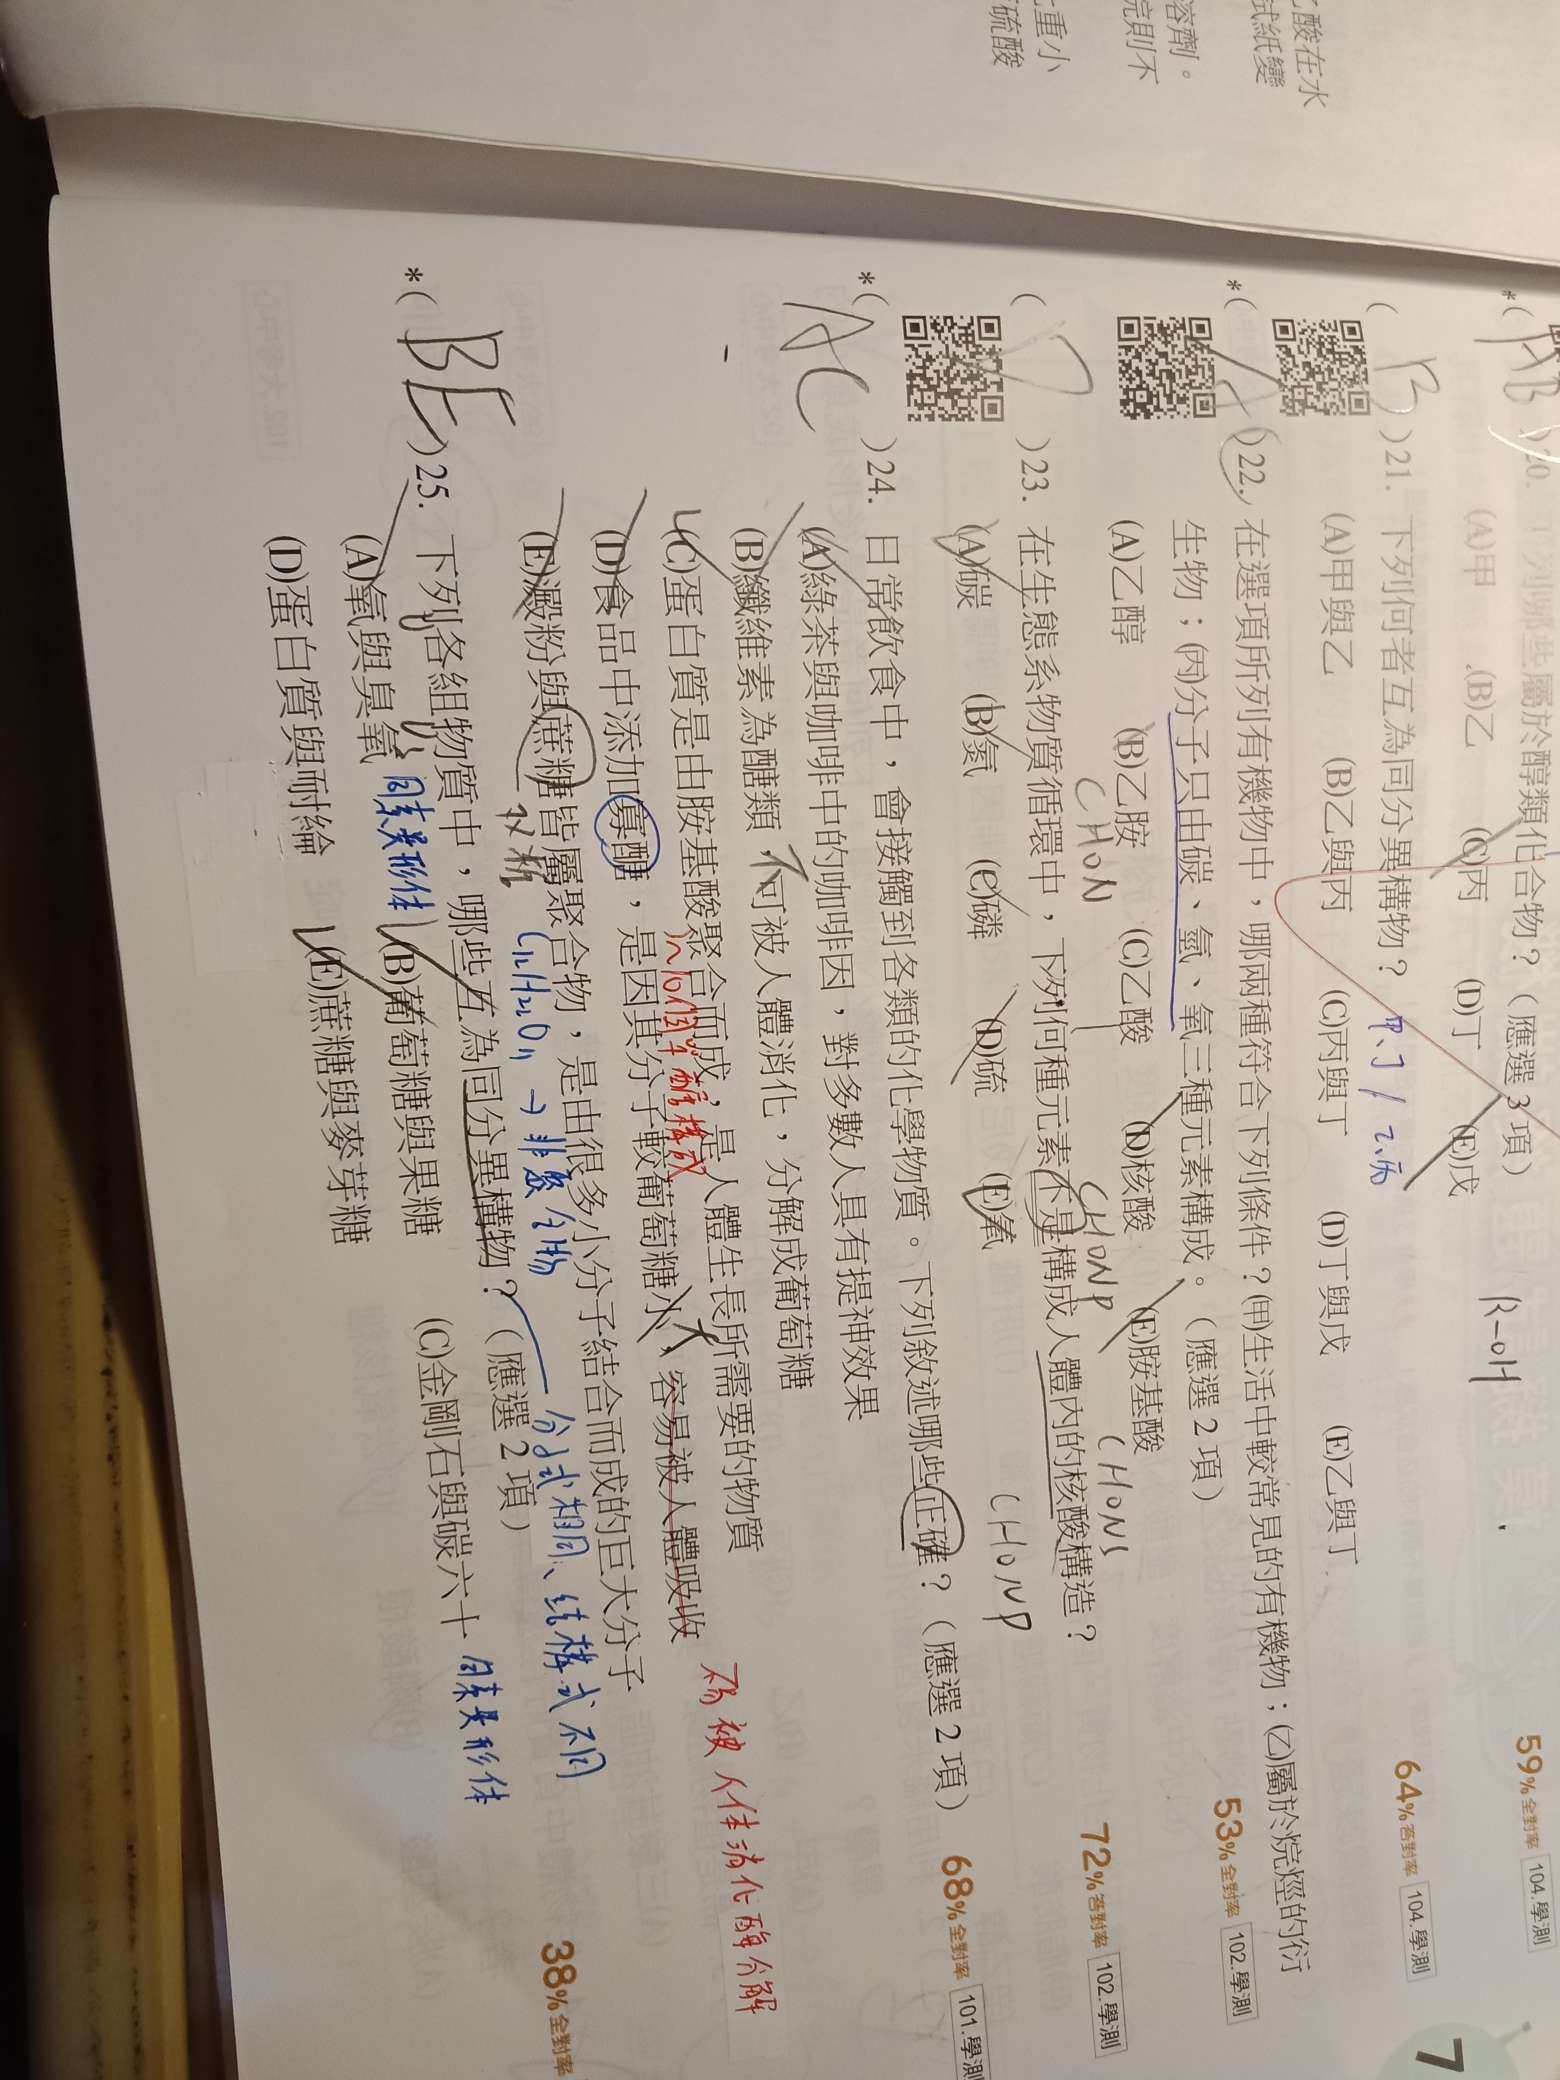 酸在水
試紙變
溶劑。
完則不
重小
硫酸
7
*( AB )20. 下列哪些屬於醇類化合物?(應選 3 項)
59%全對率 104.學測
(A)甲 (B)乙 (C)丙 (D)丁 (E)戊
R-OH
( B )21. 下列何者互為同分異構物? 甲、丁/乙、丙
64%答對率 104.學測
(A)甲與乙 (B)乙與丙 (C)丙與丁 (D)丁與戊 (E)乙與丁
*( )22. 在選項所列有機物中,哪兩種符合下列條件?(甲)生活中較常見的有機物;(乙)屬於烷烴的衍
生物;(丙)分子只由碳、氫、氧三種元素構成。(應選 2 項)
53%全對率 102.學測
(A)乙醇 (B)乙胺 (C)乙酸 (D)核酸 (E)胺基酸
CHON CHONP CHONS
( D )23. 在生態系物質循環中,下列何種元素不是構成人體內的核酸構造?
72%答對率 102.學測
(A)碳 (B)氮 (C)磷 (D)硫 (E)氧
CHONP
*( AC )24. 日常飲食中,會接觸到各類的化學物質。下列敘述哪些正確?(應選 2 項)
68%全對率 101.學測
(A)綠茶與咖啡中的咖啡因,對多數人具有提神效果
(B)纖維素為醣類,不可被人體消化,分解成葡萄糖
(C)蛋白質是由胺基酸聚合而成,是人體生長所需要的物質
2~10個單醣構成
不易被人体消化酶分解
(D)食品中添加寡醣,是因其分子較葡萄糖小大,容易被人體吸收
(E)澱粉與蔗糖皆屬聚合物,是由很多小分子結合而成的巨大分子
双糖 C12H22O11 → 非聚合物
分子式相同、結構式不同
*( BE )25. 下列各組物質中,哪些互為同分異構物?(應選 2 項)
38%全對率
(A)氧與臭氧 同素異形体 (B)葡萄糖與果糖 (C)金剛石與碳六十 同素異形体
(D)蛋白質與耐綸 (E)蔗糖與麥芽糖